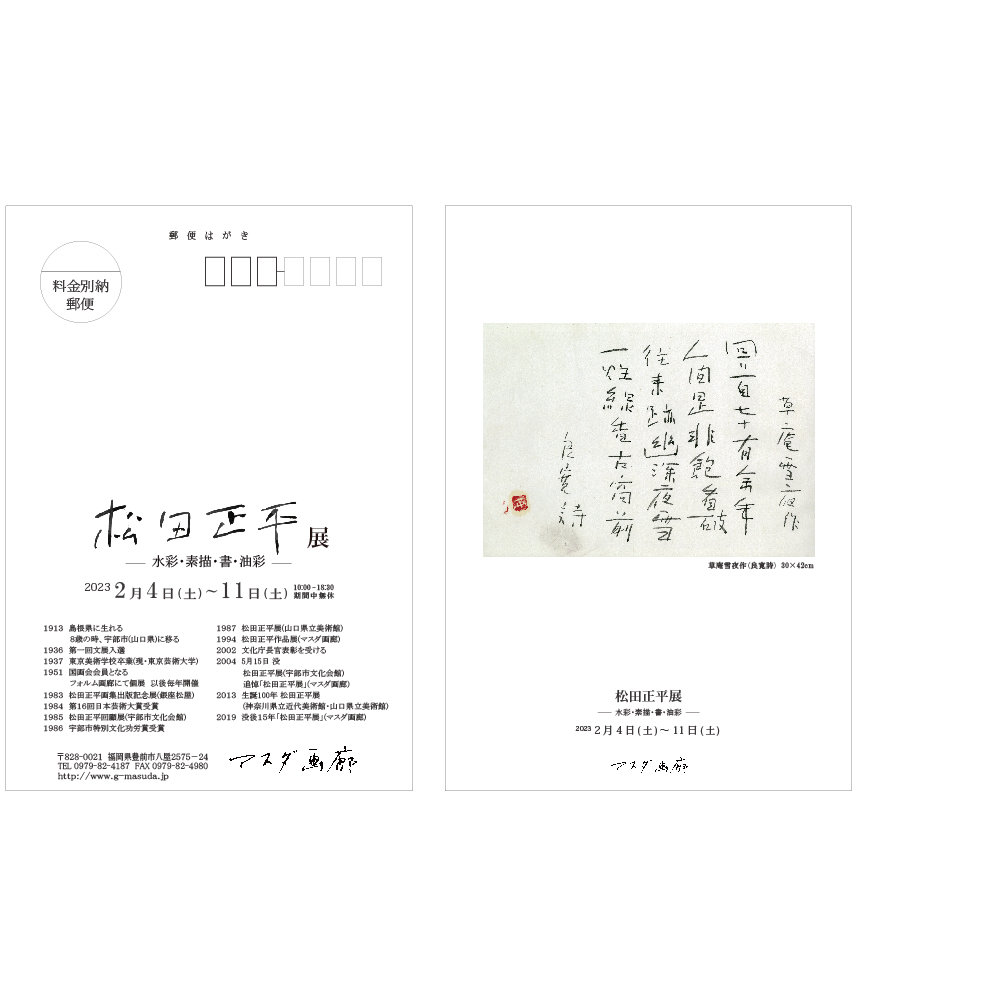 郵便はがき
料金別納
郵便
松田正平展
水彩・素描・書・油彩
2023 2月4日(土)~11日(土) 10:00-18:30
期間中無休
1913 島根県に生れる
8歳の時、宇部市(山口県)に移る
1936 第一回文展入選
1937 東京美術学校卒業(現・東京芸術大学)
1951 国画会会員となる
フォルム画廊にて個展 以後毎年開催
1983 松田正平画集出版記念展(銀座松屋)
1984 第16回日本芸術大賞受賞
1985 松田正平回顧展(宇部市文化会館)
1986 宇部市特別文化功労賞受賞
1987 松田正平展(山口県立美術館)
1994 松田正平作品展(マスダ画廊)
2002 文化庁長官表彰を受ける
2004 5月15日 没
松田正平展(宇部市文化会館)
追悼「松田正平展」(マスダ画廊)
2013 生誕100年 松田正平展
(神奈川県立近代美術館・山口県立美術館)
2019 没後15年「松田正平展」(マスダ画廊)
〒828-0021 福岡県豊前市八屋2575-24
TEL 0979-82-4187 FAX 0979-82-4980
http://www.g-masuda.jp
マスダ画廊
草庵雪夜作
回首七十有余年
人間是非飽看破
往来跡幽深夜雪
一炷線香古窗前
良寛詩
草庵雪夜作(良寛詩) 30×42cm
松田正平展
水彩・素描・書・油彩
2023 2月4日(土)~11日(土)
マスダ画廊